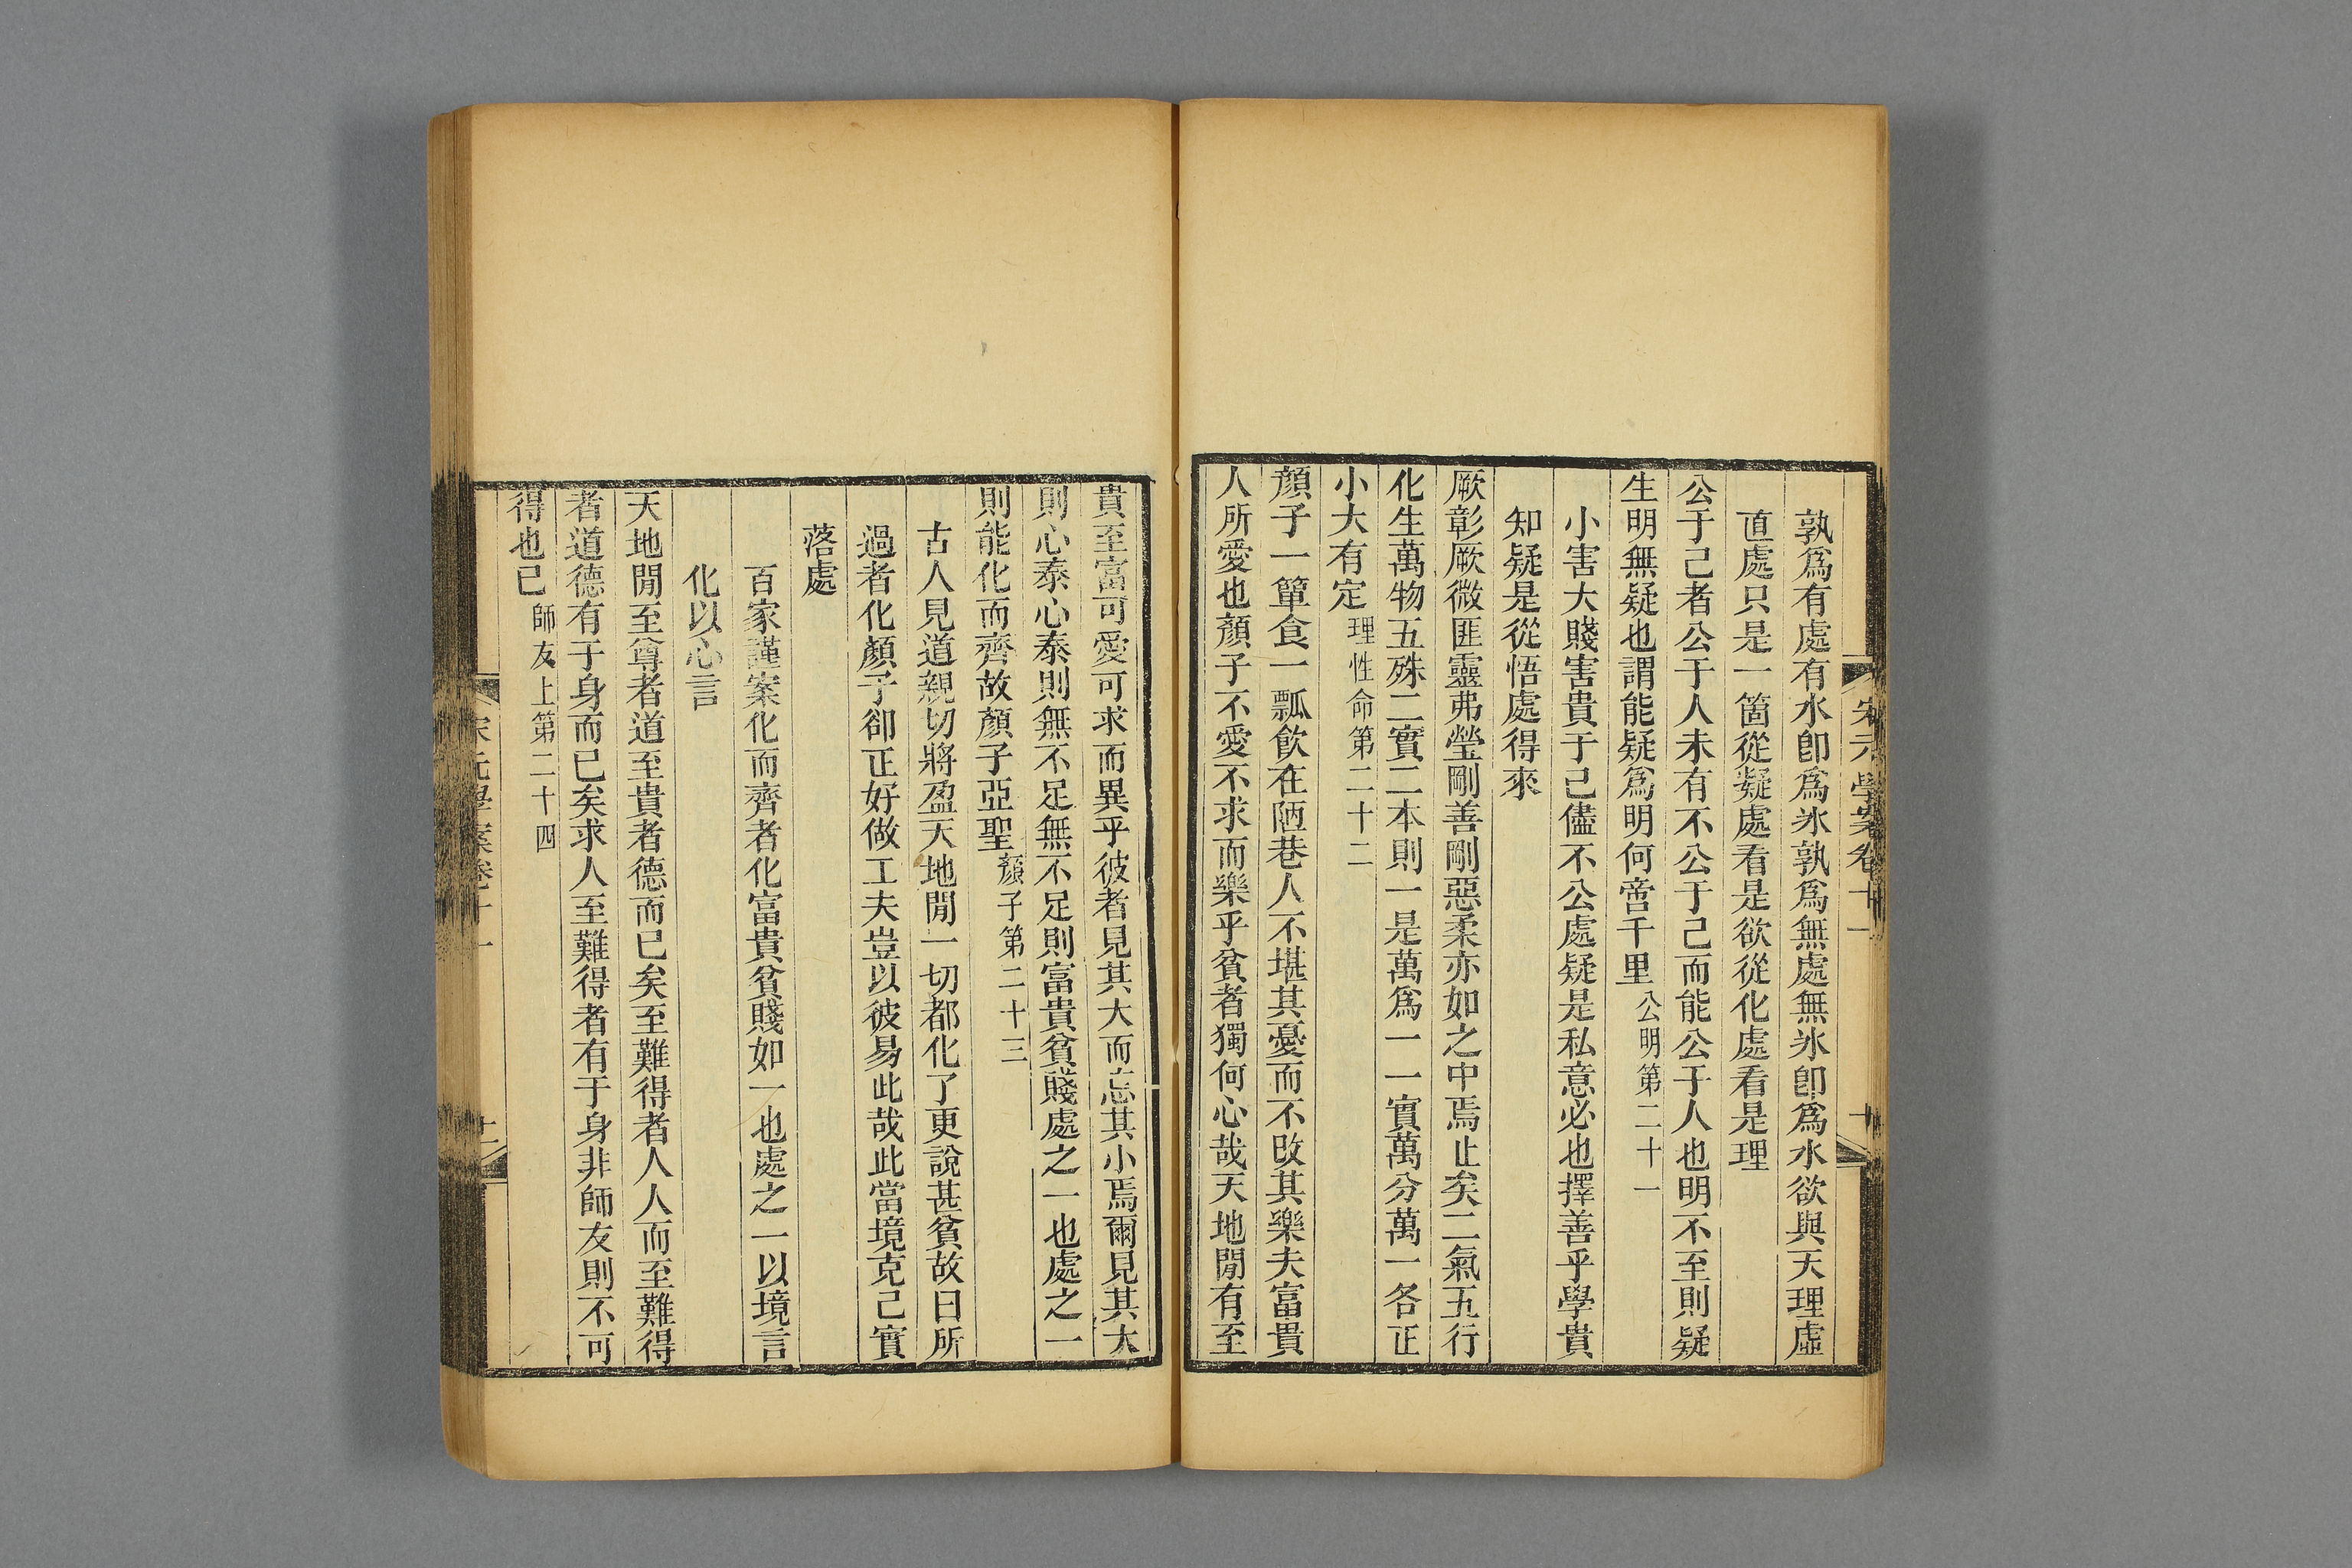 宋元學案卷十一
孰爲有處有水卽爲氷孰爲無處無氷卽爲水欲與天理虛
直處只是一箇從疑處看是欲從化處看是理
公于己者公于人未有不公于己而能公于人也明不至則疑
生明無疑也謂能疑爲明何啻千里公明第二十一
小害大賤害貴于己儘不公處疑是私意必也擇善乎學貴
知疑是從悟處得來
厥彰厥微匪靈弗瑩剛善剛惡柔亦如之中焉止矣二氣五行
化生萬物五殊二實二本則一是萬爲一一實萬分萬一各正
小大有定理性命第二十二
顏子一簞食一瓢飮在陋巷人不堪其憂而不改其樂夫富貴
人所愛也顏子不愛不求而樂乎貧者獨何心哉天地閒有至
貴至富可愛可求而異乎彼者見其大而忘其小焉爾見其大
則心泰心泰則無不足無不足則富貴貧賤處之一也處之一
則能化而齊故顏子亞聖顏子第二十三
古人見道親切將盈天地閒一切都化了更說甚貧故曰所
過者化顏子卻正好做工夫豈以彼易此哉此當境克己實
落處
百家謹案化而齊者化富貴貧賤如一也處之一以境言
化以心言
天地閒至尊者道至貴者德而已矣至難得者人人而至難得
者道德有于身而已矣求人至難得者有于身非師友則不可
得也已師友上第二十四
宋元學案卷十一